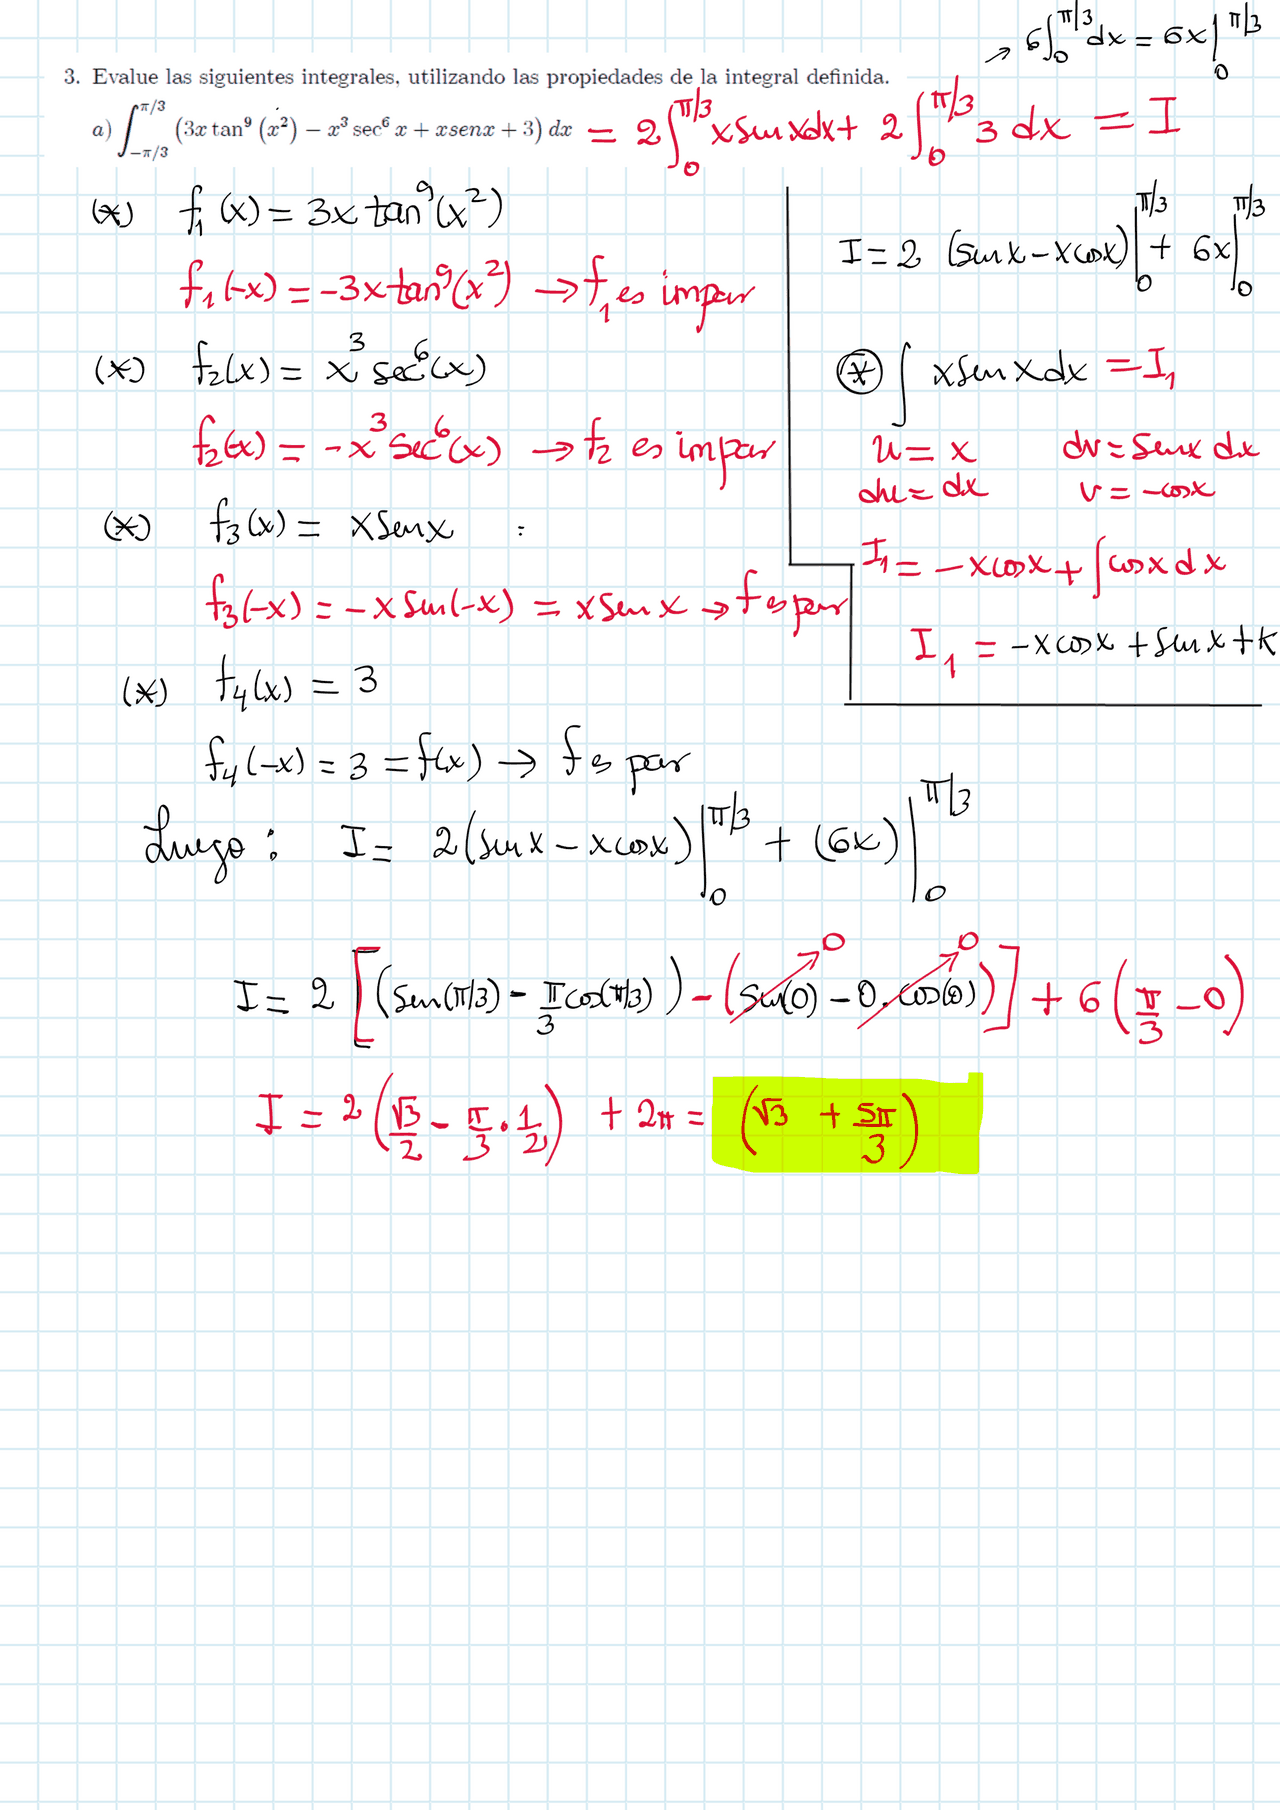 → 6∫₀^{π/3} dx = 6x |₀^{π/3}
3. Evalue las siguientes integrales, utilizando las propiedades de la integral definida.
a) ∫_{-π/3}^{π/3} (3x tan⁹ (x²) − x³ sec⁶ x + xsenx + 3) dx = 2∫₀^{π/3} x sen x dx + 2∫₀^{π/3} 3 dx = I
(*) f₁(x) = 3x tan⁹(x²)
f₁(-x) = -3x tan⁹(x²) → f₁ es impar
(*) f₂(x) = x³ sec⁶(x)
f₂(-x) = -x³ sec⁶(x) → f₂ es impar
(*) f₃(x) = x sen x :
f₃(-x) = -x sen(-x) = x sen x → f es par
(*) f₄(x) = 3
f₄(-x) = 3 = f(x) → f es par
I = 2 (sen x - x cos x) |₀^{π/3} + 6x |₀^{π/3}
(*) ∫ x sen x dx = I₁
u = x dv = sen x dx
du = dx v = -cos x
I₁ = -x cos x + ∫ cos x dx
I₁ = -x cos x + sen x + k
Luego: I = 2(sen x - x cos x) |₀^{π/3} + (6x) |₀^{π/3}
I = 2 [(sen(π/3) - π/3 cos(π/3)) - (sen(0) - 0. cos(0))] + 6 (π/3 - 0)
0 0
I = 2 (√3/2 - π/3 . 1/2) + 2π = (√3 + 5π/3)